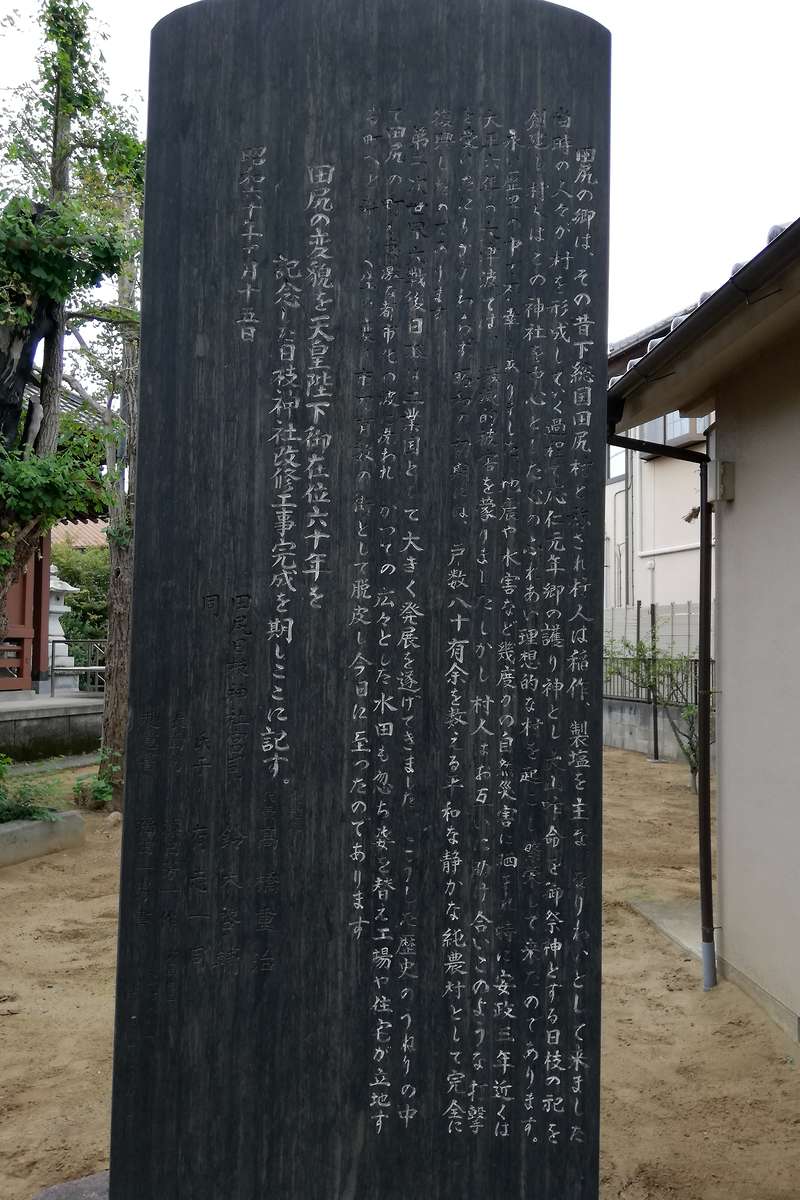 田尻の郷は、その昔下総国田尻村と称され村人は稲作、製塩を主ななりわいとして来ました
当時の人々が村を形成してゆく過程で応仁元年郷の護り神とし大山咋命を御祭神とする日枝の祀を
創建し村人はこの神社を中心とした心のふれあい理想的な村を起こし繁栄して来たのであります。
永い歴史の中で不幸もありました地震や水害など幾度かの自然災害に晒され特に安政三年近くは
大正六年の大津波では、壊滅的被害を蒙りましたしかし村人はお互いに助け合いこのような打撃
を受けたにもかかわらず昭和の初期には、戸数八十有余を数える平和な静かな純農村として完全に
復興したのであります
第二次世界大戦後日本は工業国として大きく発展を遂げてきましたこうした歴史のうねりの中
で田尻の町も急激な都市化の波に洗われかつての広々とした水田も忽ち姿を替え工場や住宅が立地す
る町へと の街として脱皮し今日に至ったのであります
田尻の変貌を天皇陛下御在位六十年を
記念した日枝神社改修工事完成を期しここに記す。
昭和六十年 月十五日
高橋重治
田尻日枝神社宮司 鈴木啓輔
同 氏子 有志一同